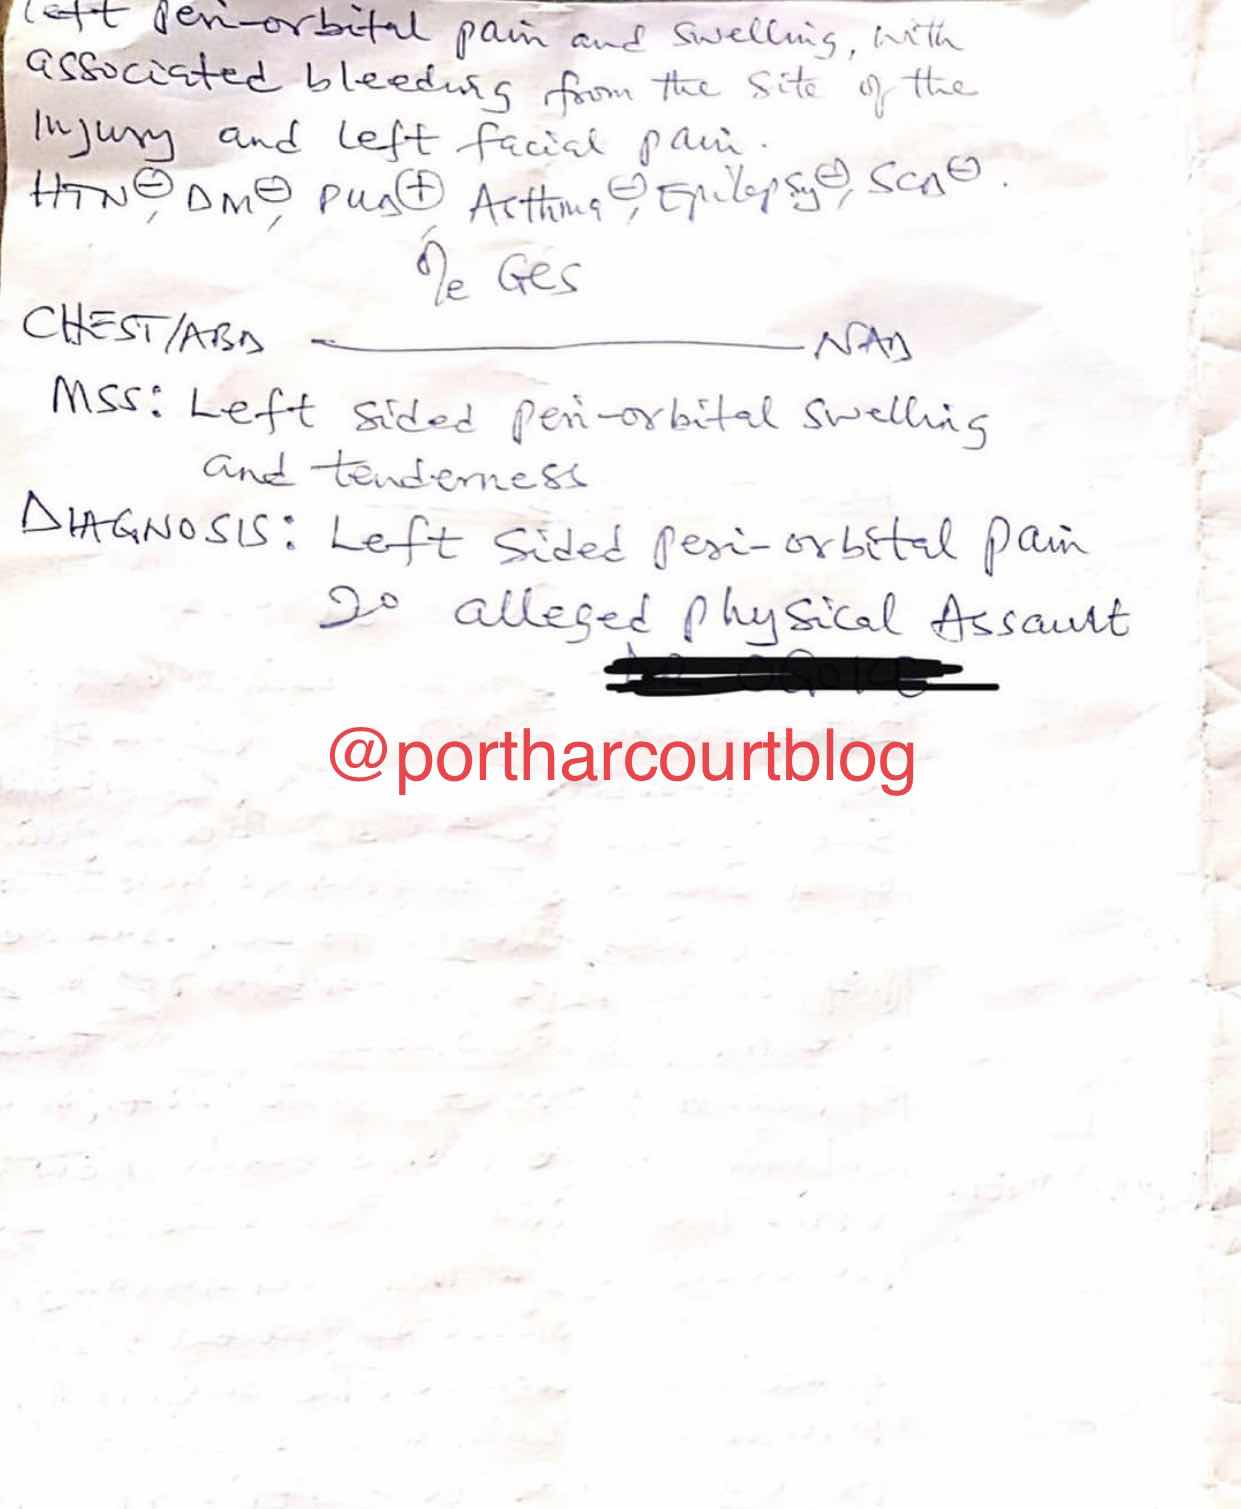 Left peri-orbital pain and swelling, with
associated bleeding from the site of the
Injury and left facial pain.
HTN⊖, DM⊖, PUD⊕, Asthma⊖, Epilepsy⊖, SCD⊖.
O/e GCS
CHEST/ABD — NAD
MSS: Left sided peri-orbital swelling
and tenderness
DIAGNOSIS: Left sided peri-orbital pain
2° alleged physical Assault
@portharcourtblog